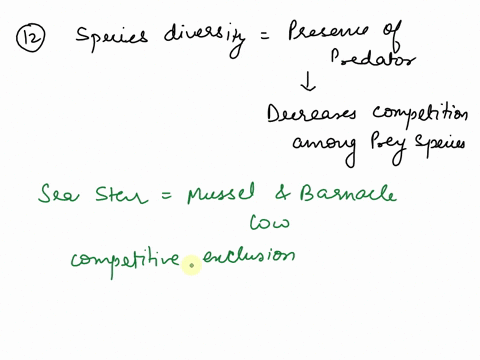 12 Species diversity = Presence of
Predator
↓
Decreases competition
among Prey Species
Sea Star = Mussel & Barnacle
Cow
competitive exclusion